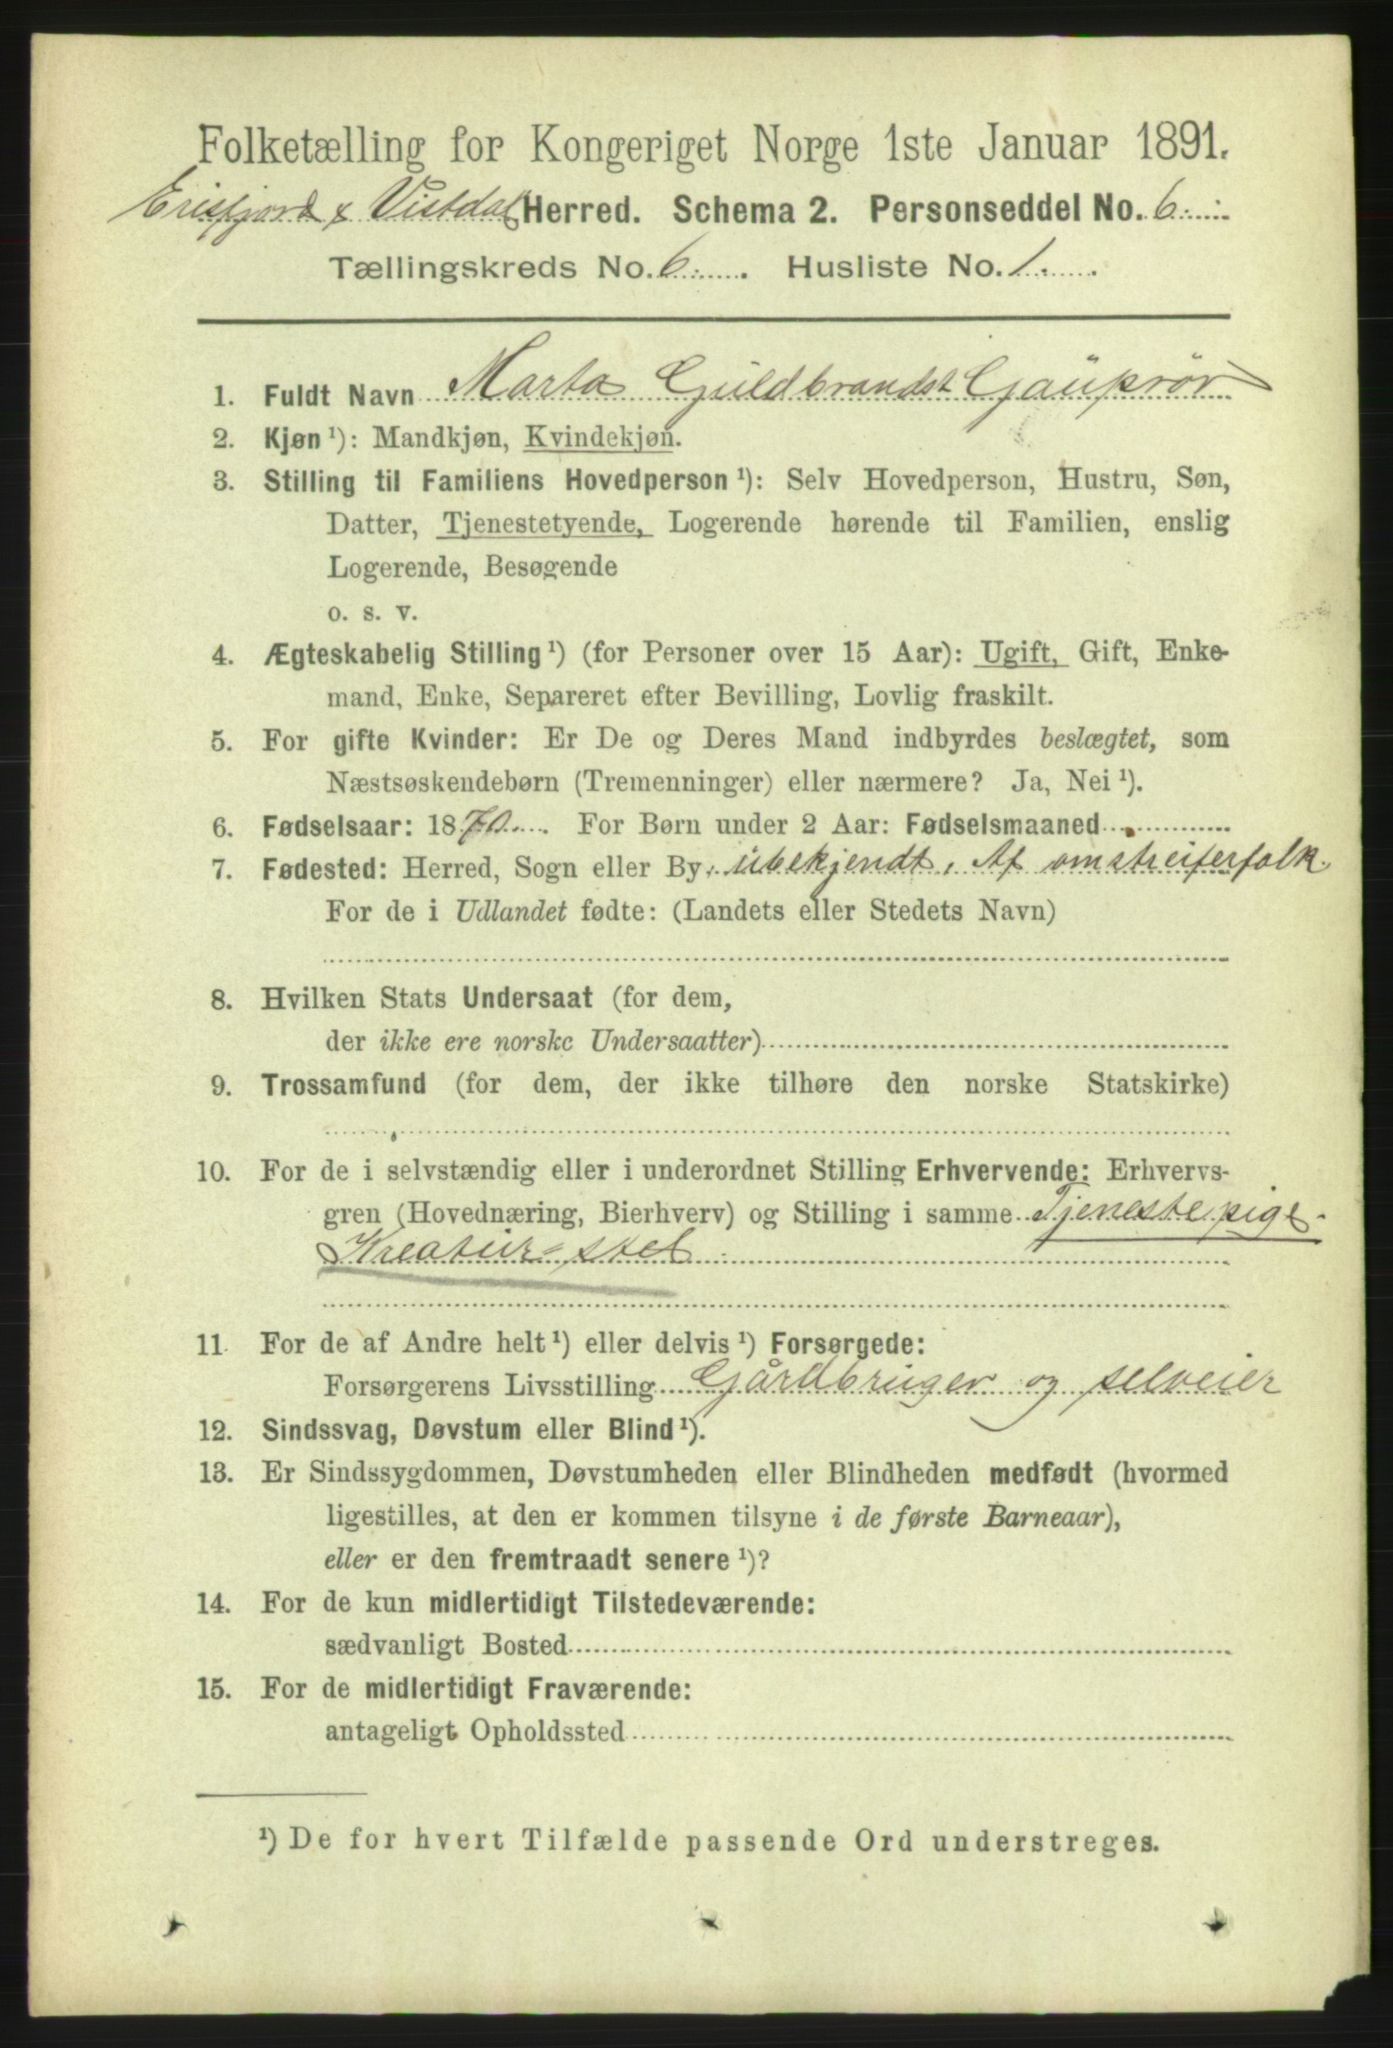 Folketælling for Kongeriget Norge 1ste Januar 1891.
Erisfjord & Vistdal Herred. Schema 2. Personseddel No. 6
Tællingskreds No. 6. Husliste No. 1.
1. Fuldt Navn Marta Guldbrandst Gauprør
2. Kjøn ¹): Mandkjøn, Kvindekjøn.
3. Stilling til Familiens Hovedperson ¹): Selv Hovedperson, Hustru, Søn,
Datter, Tjenestetyende, Logerende hørende til Familien, enslig
Logerende, Besøgende
o. s. v.
4. Ægteskabelig Stilling ¹) (for Personer over 15 Aar): Ugift, Gift, Enke-
mand, Enke, Separeret efter Bevilling, Lovlig fraskilt.
5. For gifte Kvinder: Er De og Deres Mand indbyrdes beslægtet, som
Næstsøskendebørn (Tremenninger) eller nærmere? Ja, Nei ¹).
6. Fødselsaar: 1870. For Børn under 2 Aar: Fødselsmaaned
7. Fødested: Herred, Sogn eller By, ubekjendt, Af omstreiferfolk.
For de i Udlandet fødte: (Landets eller Stedets Navn)
8. Hvilken Stats Undersaat (for dem,
der ikke ere norske Undersaatter)
9. Trossamfund (for dem, der ikke tilhøre den norske Statskirke)
10. For de i selvstændig eller i underordnet Stilling Erhvervende: Erhvervs-
gren (Hovednæring, Bierhverv) og Stilling i samme Tjenestepige
Kreatur-stel
11. For de af Andre helt ¹) eller delvis ¹) Forsørgede:
Forsørgerens Livsstilling Gårdbruger og selveier
12. Sindssvag, Døvstum eller Blind ¹).
13. Er Sindssygdommen, Døvstumheden eller Blindheden medfødt (hvormed
ligestilles, at den er kommen tilsyne i de første Barneaar),
eller er den fremtraadt senere ¹)?
14. For de kun midlertidigt Tilstedeværende:
sædvanligt Bosted
15. For de midlertidigt Fraværende:
antageligt Opholdssted
¹) De for hvert Tilfælde passende Ord understreges.